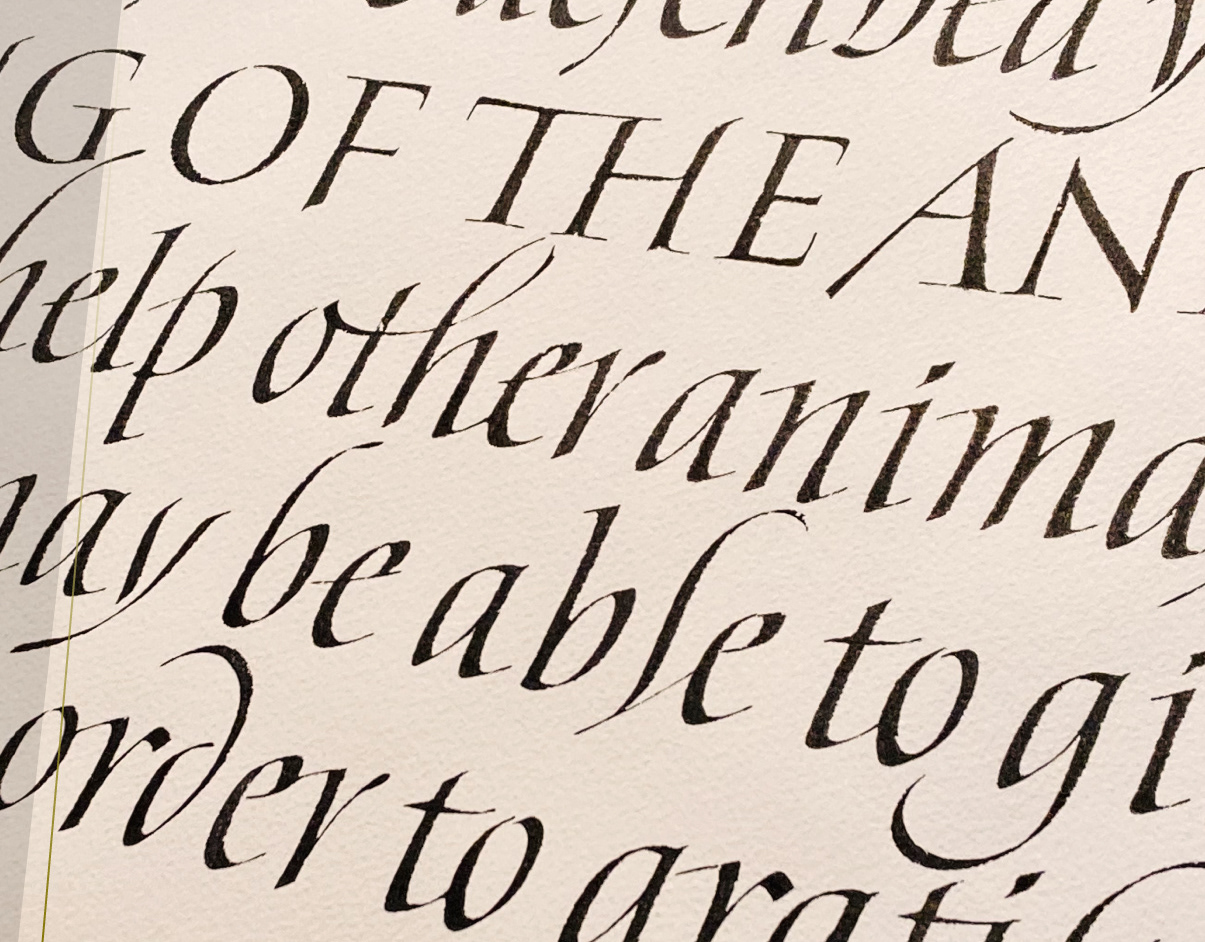 G OF THE AN
help other anima
may be able to gi
order to grati